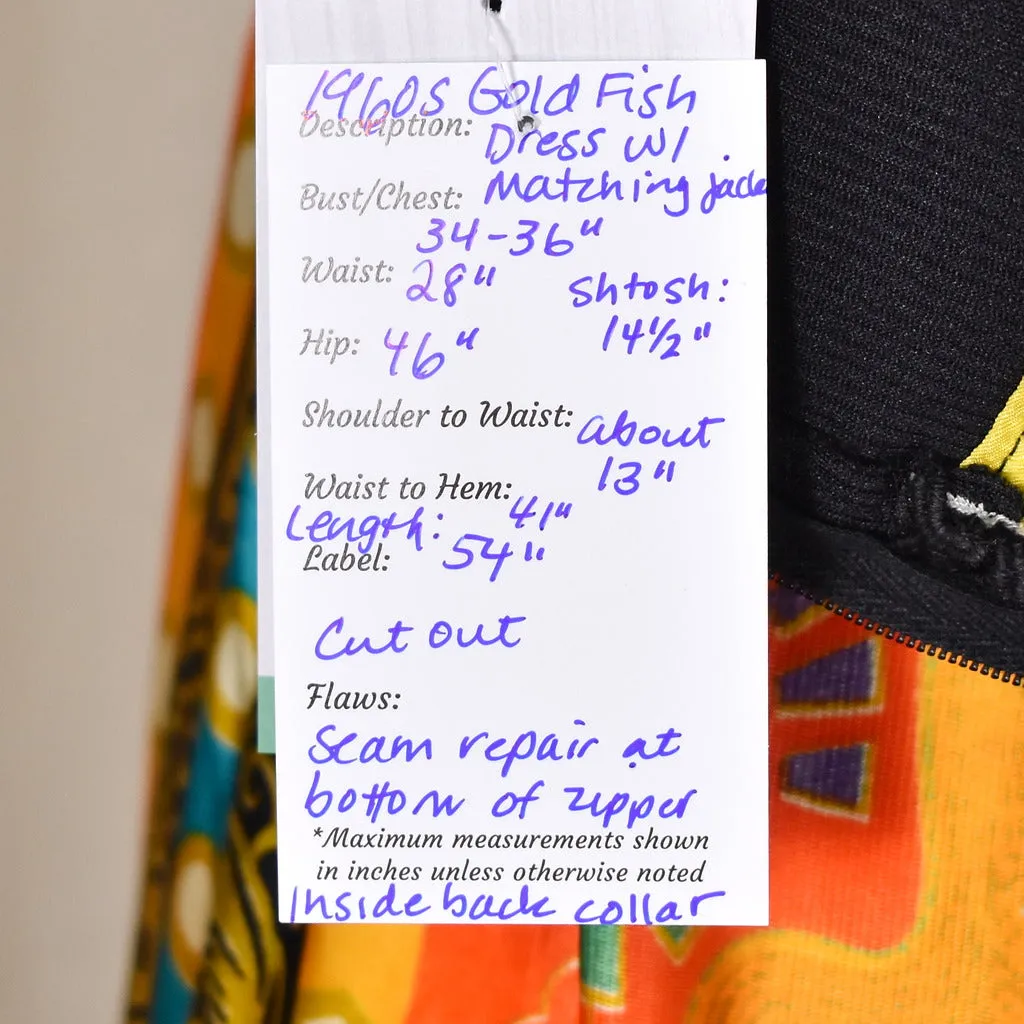 1960s Gold Fish
Description: Dress w/
Bust/Chest: Matching jack
34-36"
Waist: 28" Sh to sh:
14½"
Hip: 46"
Shoulder to Waist: about
13"
Waist to Hem: 41"
Length: 54"
Label:
Cut out
Flaws:
Seam repair at
bottom of zipper
*Maximum measurements shown
in inches unless otherwise noted
Inside back collar